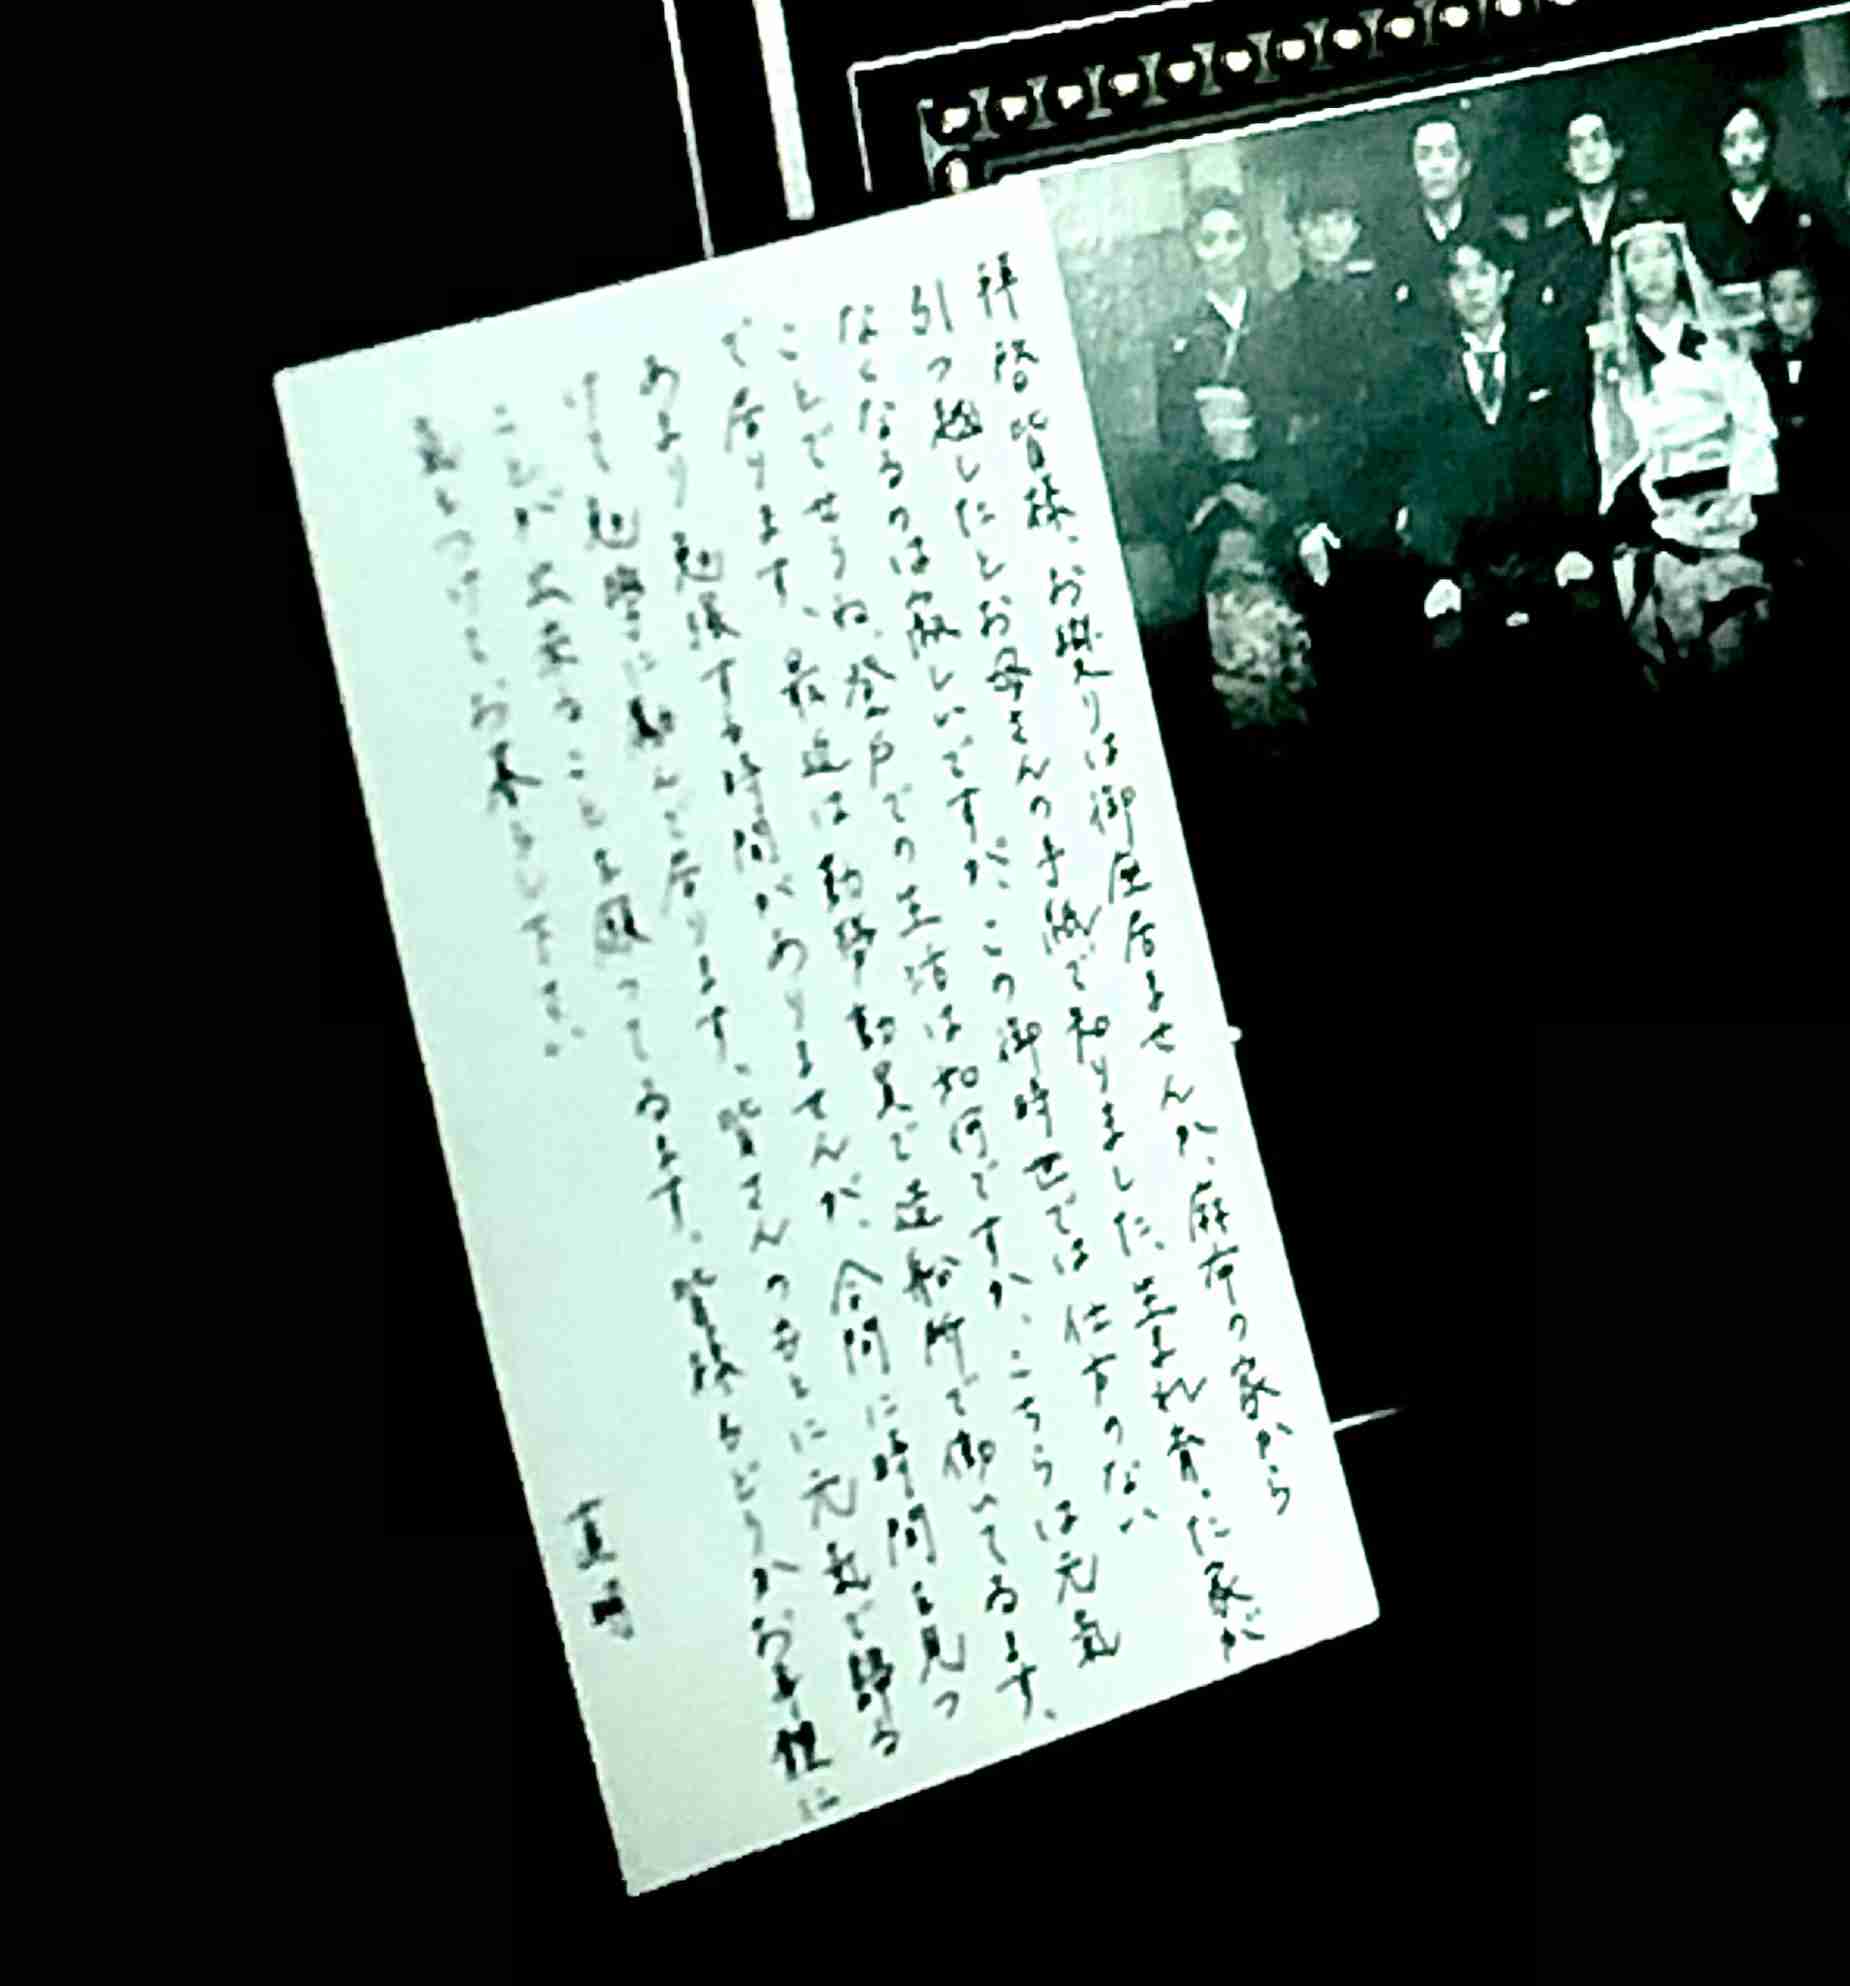 拝啓 皆様、お変りは御座居ませんか、麻布の家から
引っ越したとお母さんの手紙で知りました、生まれ育った家が
なくなるのは寂しいですが、この御時世では仕方のない
ことでせうね、登戸での生活は如何ですか、こちらは元気
で居ります、最近は勤労動員で造船所で働いてゐます、
あまり勉強する時間がありませんが、合間に時間を見つ
けて勉学に励んで居ります、皆さんのもとに元気で帰る
ことが出来ることを願ってゐます、皆様もどうかお身体に
気をつけてお過ごし下さい。